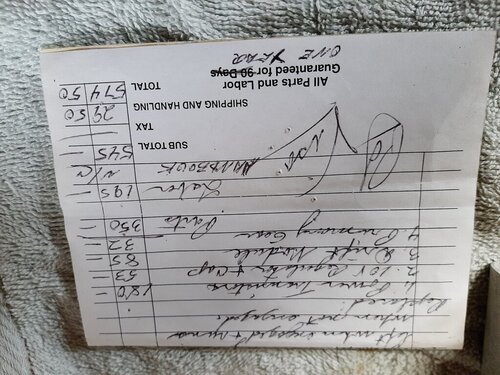 when engaged & turns
when not engaged.
Replaced:
1. Power Transistors 180 -
2. 10V Regulator & Cap 53 -
3. Drift Module 85 -
4. Primary Gear 32 -
Parts 350 -
Labor 195 -
HANDBOOK N/C
SUB TOTAL 545 -
TAX -
SHIPPING AND HANDLING 29 50
TOTAL 574 50
Pd
All Parts and Labor
Guaranteed for 90 Days
ONE YEAR